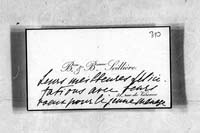 310
Bon & Bonne Seillière
leurs meilleures félici-
tations avec leurs
vœux pour le jeune ménage